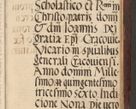 Scholastico et Rom in
Christo patris domi
dni Ioannis Dei
Gratia Epi Cracovie.
Vicario in spiritalibus
Generali Cracovien̄.
Anno domini Mille
simo quingentesimo
tricesimo
cione Nona die